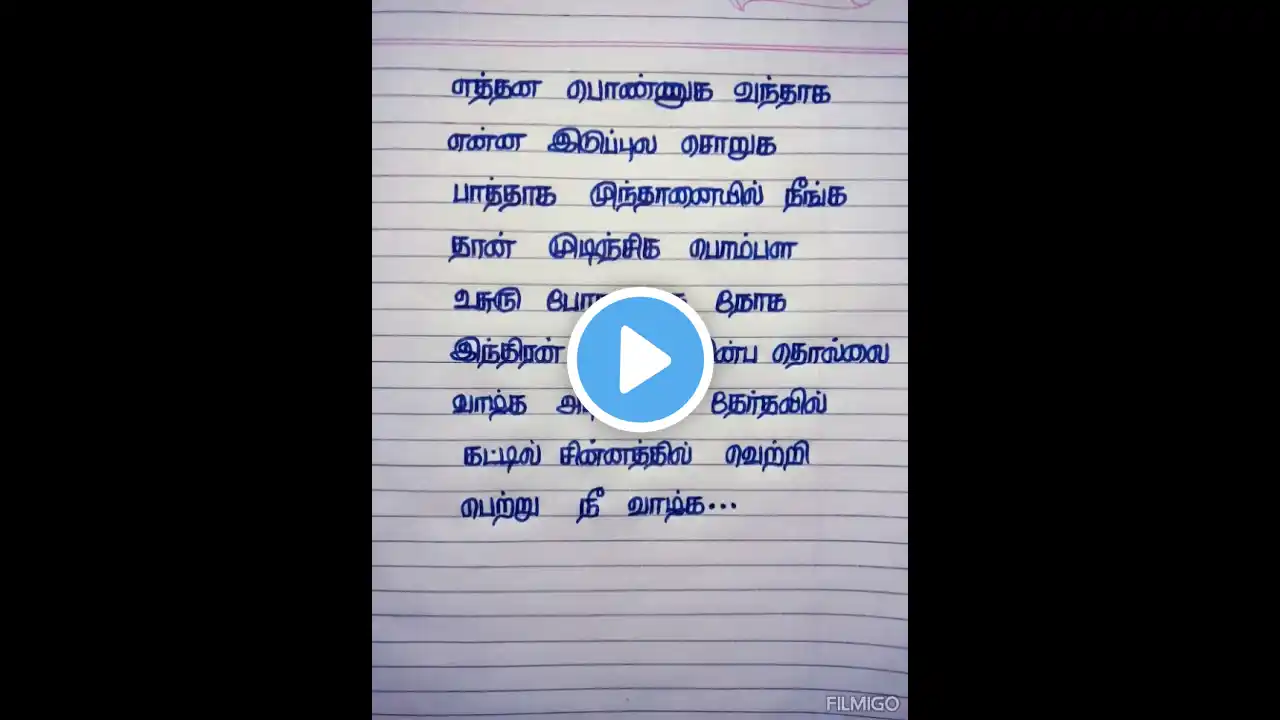 எத்தன பொண்ணுக வந்தாக
என்ன இடுப்புல சொறுக
பாத்தாக முந்தானையில் நீங்க
தான் முடிஞ்சிக பொம்பள
உசுரு நோக
இந்திரன் தொல்லை
வாழ்க தேர்தலில்
கட்டில் சின்னத்தில் வெற்றி
பெற்று நீ வாழ்க...
FILMIGO